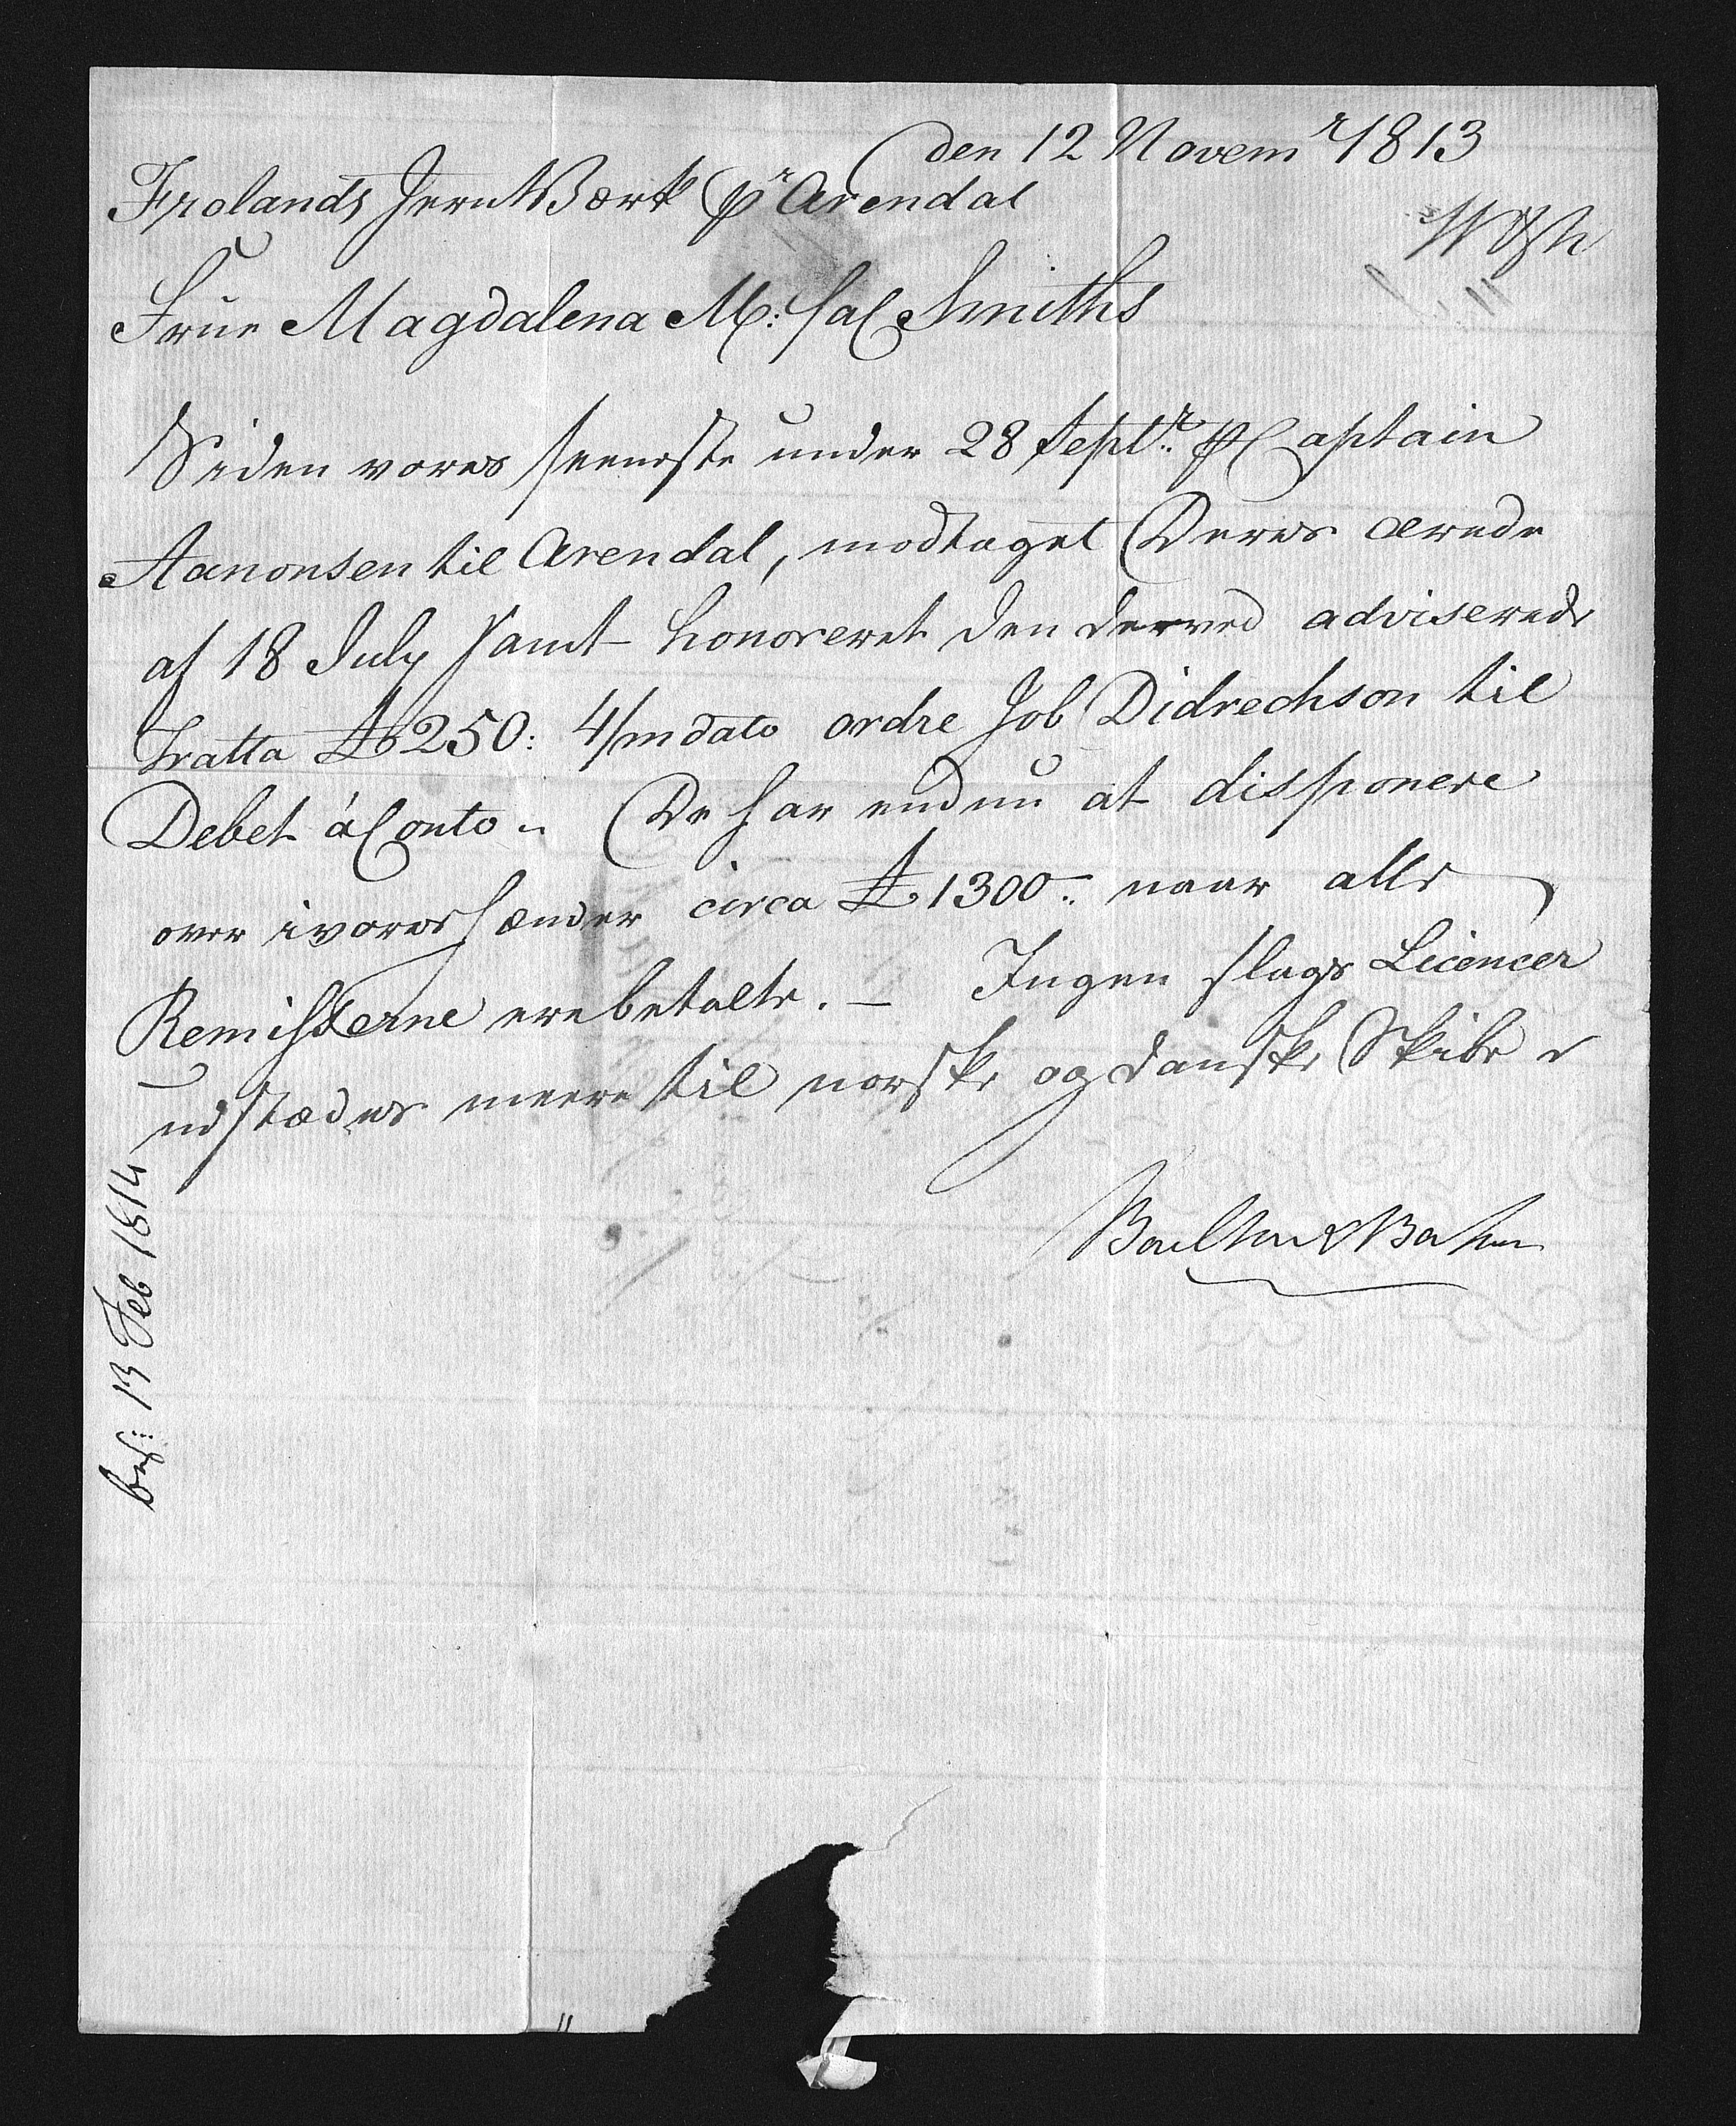 den 12 Novemr 1813
Frolands JernWærk pr Arendal
Frue Magdalena M: sal Smiths
Siden vores seeneste under 28 Septr. pr Captain
Aanonsen til Arendal, modtaget Deres ærede
af 18 July samt honoreret den derved adviserede
Tratta £250: 4/m dato ordre Job Didrechson til
Debet á Conto. De har endnu at disponere
over i vores Hænder circa £1300:. naar alle
Remisserne ere betalte. — Ingen slags Licencer
udstædes meere til norske og danske Skibe
bes: 13 Feb 1814